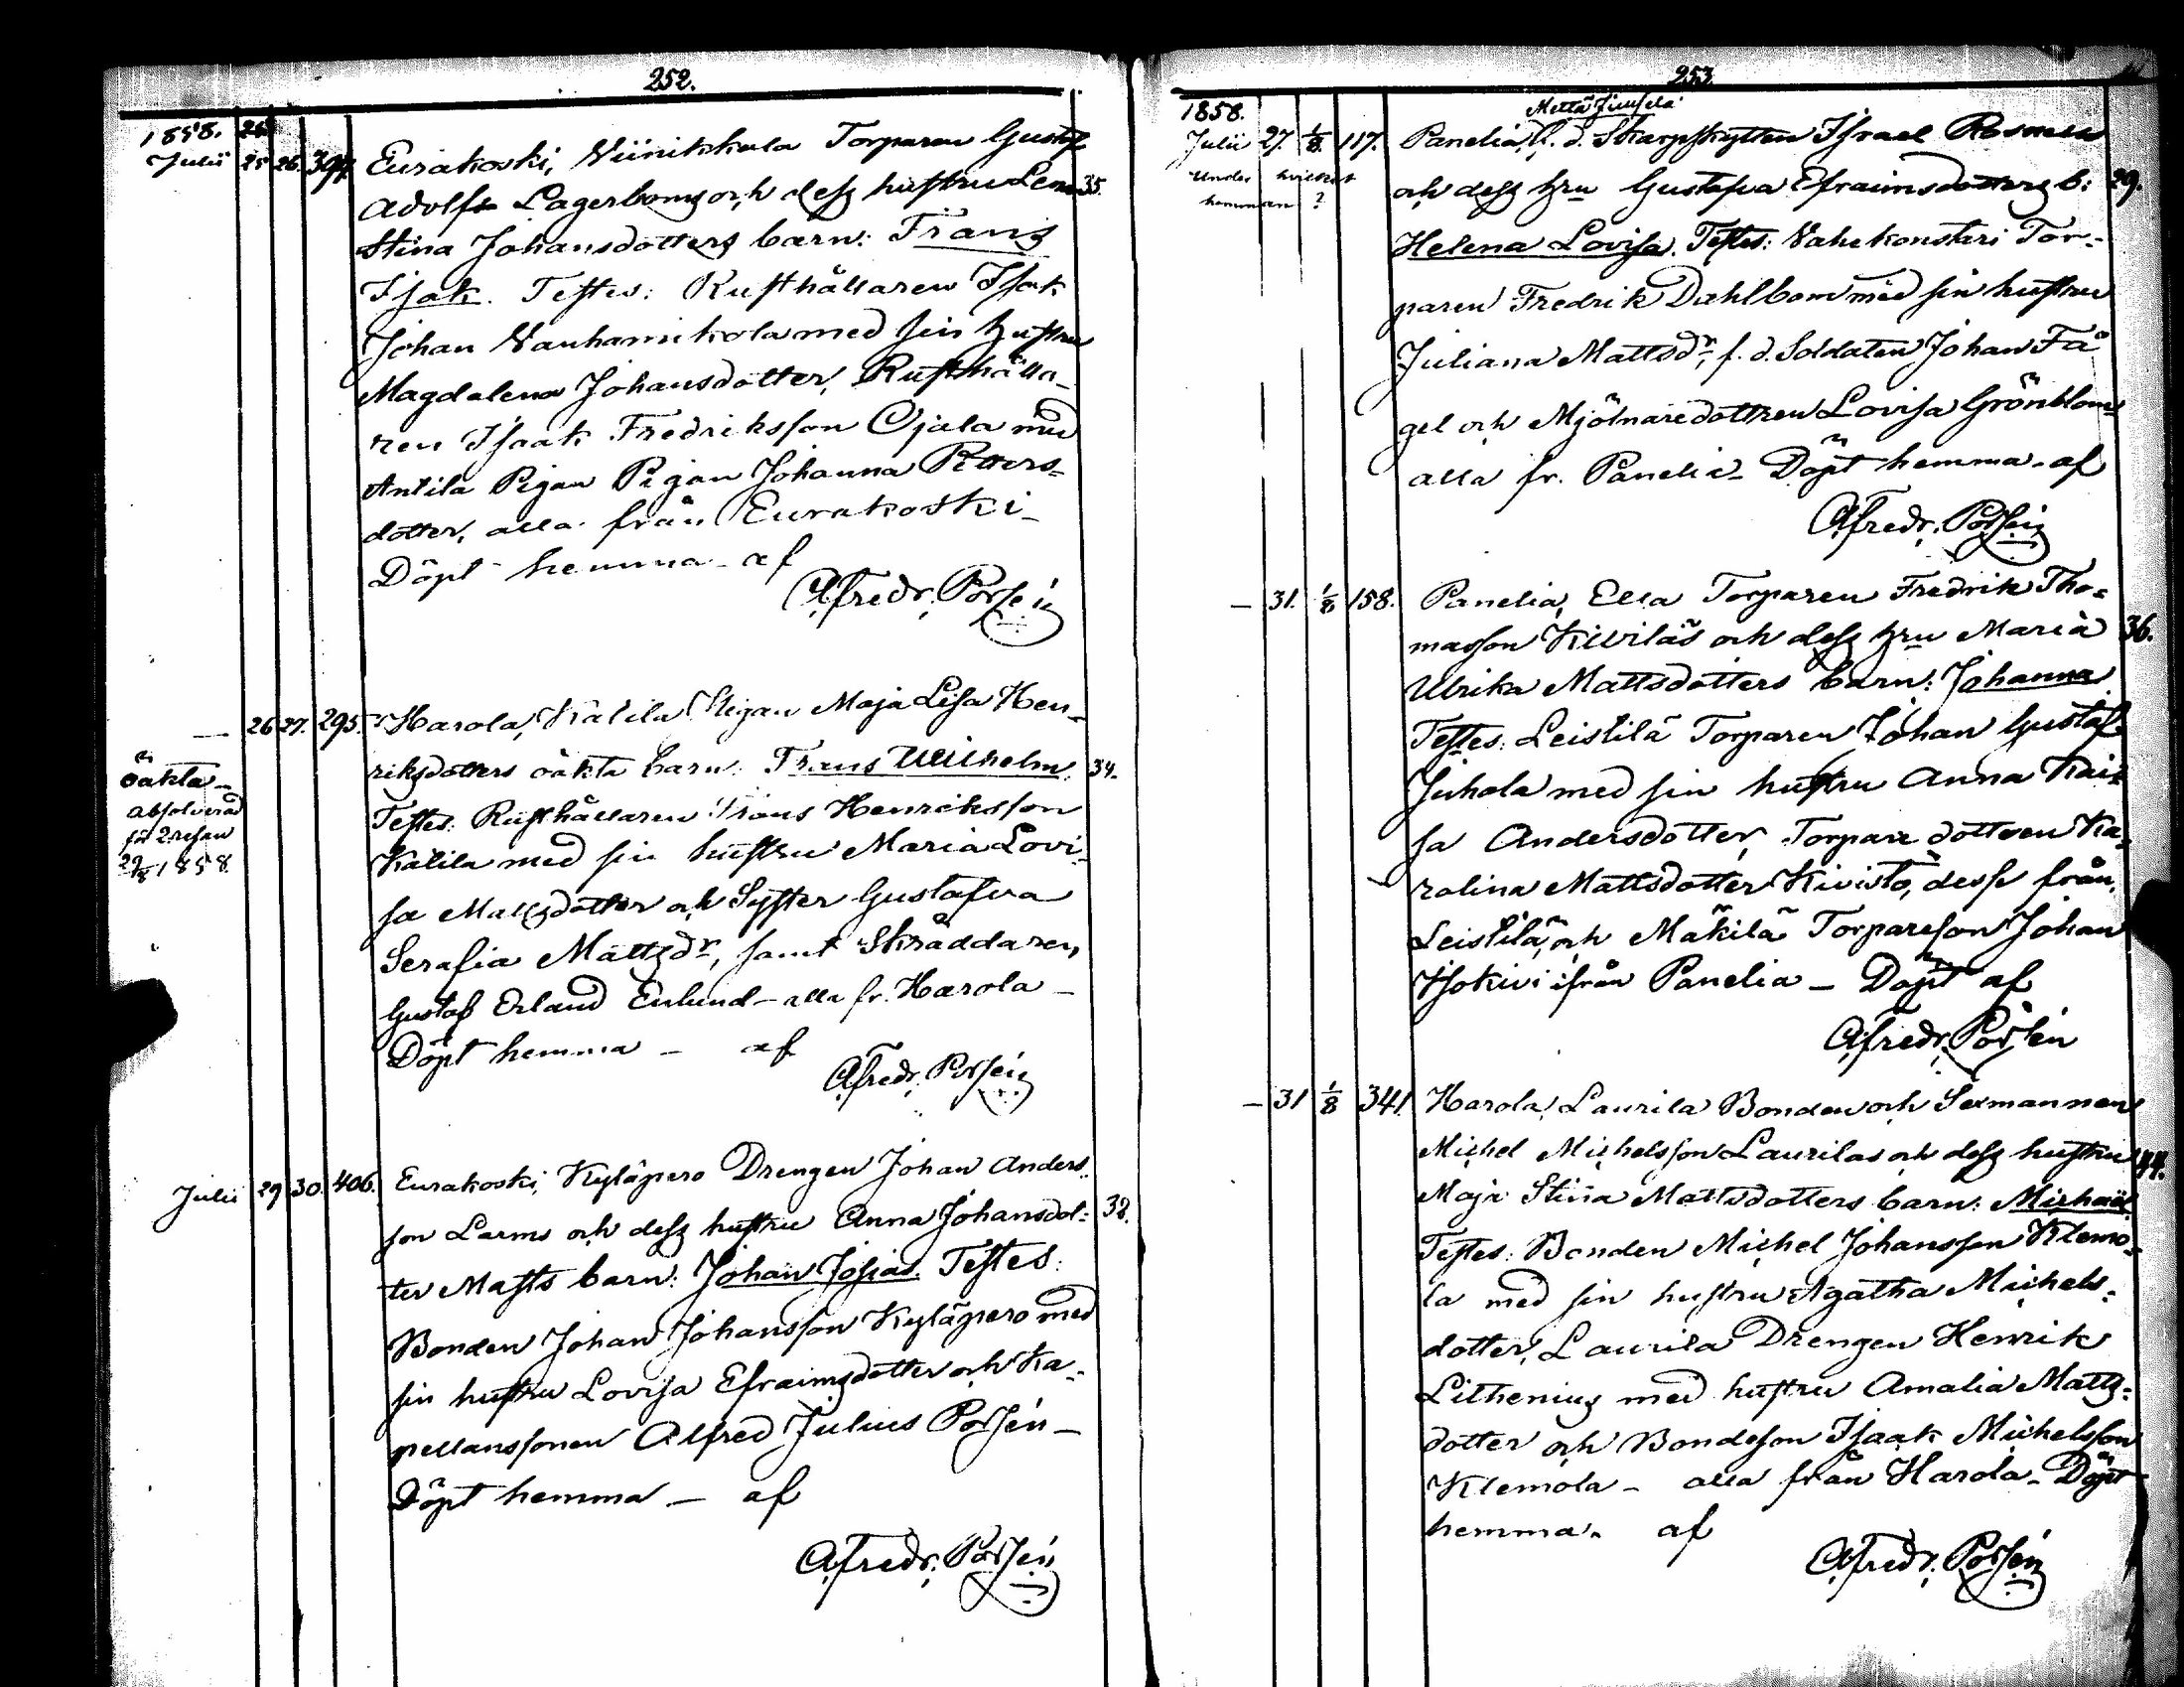 252.
1858.
Julii 25 26. 394. Eurakoski, Viinikkala Torparen Gustaf
Adolfs Lagerboms och dess hustru Lena 35.
Stina Johansdotters barn: Frans
Isak. Testes: Rusthållaren Isak
Johan Vanhanikola med sin hustru
Magdalena Johansdotter, Rusthålla-
ren Isaak Fredriksson Ojala med
Antila Pigan Pigan Johanna Petters-
dotter, alla från Eurakoski -
Döpt hemma - af
Afredr. Porsén
— 26 27. 295. Harola, Katila Pigan Maja Lisa Hen-
riksdotters oäkta barn: Frans Wilhelm. 34.
oäkta -
absolverad
för 2 resan
29/8 1858.
Testes: Rusthållaren Frans Henriksson
Katila med sin hustru Maria Lovi-
sa Mattsdotter och Syster Gustafva
Serafia Mattsdr, samt Skräddaren
Gustaf Erland Enlund - alla fr. Harola -
Döpt hemma - af
Afredr. Porsén
Julii 29 30. 406. Eurakoski, Kyläpero Drengen Johan Anders-
son Larms och dess hustru Anna Johansdot- 38.
ter Masts barn: Johan Josias. Testes:
Bonden Johan Johansson Kyläpero med
sin hustru Lovisa Efraimsdotter och Ka-
pellanssonen Alfred Julius Porsén -
Döpt hemma - af
Afredr. Porsén
253.
1858.
Julii 27. 1/8. 117. Panelia, f. d. Skarpskytten Israel Rosmells
under hvilket
hemman?
och dess hru Gustafva Efraimsdotters b: 29.
Helena Lovisa. Testes: Vahekonstari Tor-
paren Fredrik Dahlbom med sin hustru
Juliana Mattsdr, f. d. Soldaten Johan Få
gel och Mjölnaredottren Lovisa Grönblom
alla fr. Panelia - Döpt hemma - af
Afredr. Porsén
— 31. 1/8 158. Panelia, Ella Torparen Fredrik Tho-
masson Kiviläs och dess hru Maria 36.
Ulrika Mattsdotters barn: Johanna
Testes: Leistilä Torparen Johan Gustaf
Juhola med sin hustru Anna Kai-
sa Andersdotter, Torpare dottren Ka-
rolina Mattsdotter Kivistö, desse från
Leistilä, och Mäkilä Torpareson Johan
Isokivi ifrån Panelia - Döpt af
Afredr. Porsén
— 31 1/8 341. Harola, Laurila Bonden och Sexmannen
Michel Michelsson Laurilas och dess hustru 44.
Maja Stina Mattsdotters barn: Michaël.
Testes: Bonden Michel Johansson Klemo-
la med sin hustru Agatha Michels-
dotter, Laurila Drengen Henrik
Lithenius med hustru Amalia Matts-
dotter och Bondeson Isaak Michelsson
Klemola - alla från Harola - Döpt
hemma. af
Afredr. Porsén